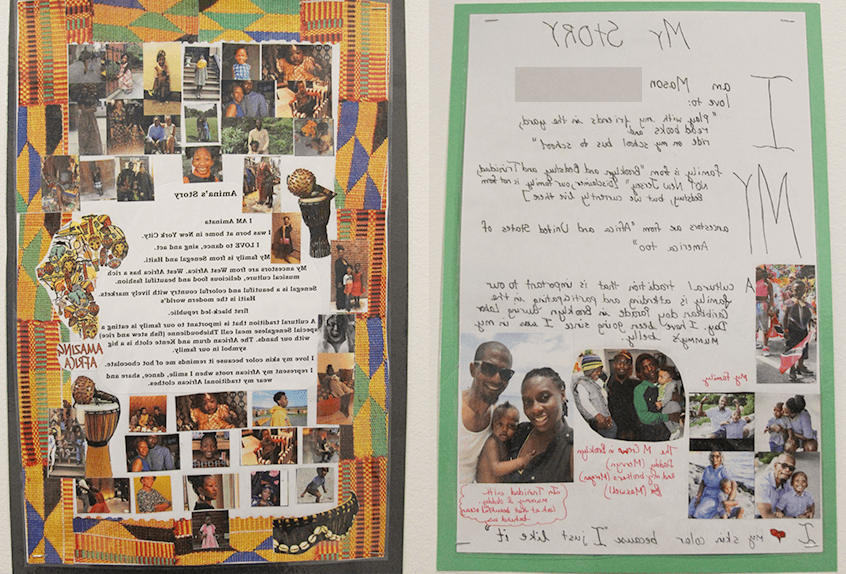 Amina's Story
I AM Aminata
I was born at home in New York City.
I LOVE to dance, sing and act.
My family is from Senegal and Haiti.
My ancestors are from West Africa. West Africa has a rich
musical culture, delicious food and beautiful fashion.
Senegal is a beautiful and colourful country with lively markets.
Haiti is the modern world's
first black-led republic.
A cultural tradition that is important to our family is eating a
special Senegalese meal call Thieboudienne (fish stew and rice)
with our hands. The African drum and Kente cloth is a big
symbol in our family.
I love my skin color because it reminds me of hot chocolate.
I represent my African roots when I smile, dance, share and
wear my traditional African clothes.
AMAZING
AFRICA
My STORY
I am Mason
love to:
"play with my friends in the yard,
read books and
ride on my school bus to school"
MY family is from "Brooklyn and Bedstuy and Trinidad,
NOT New Jersey" [Disclaimer your family is not from
Bedstuy, but we currently live there]
ancestors are from "Africa and United States of
America too"
A cultural tradition that is important to our
family is attending and participating in the
Caribbean day Parade in Brooklyn during Labor
Day. I have been going since I was in my
mummy's belly.
My family
The M Crew in Brooklyn
Daddy (Mervyn)
and my brothers (Morgan)
(Maxwell)
In Trinidad with
mummy & daddy
look at that beautiful ocean
behind us
I my skin color because "I just like it"